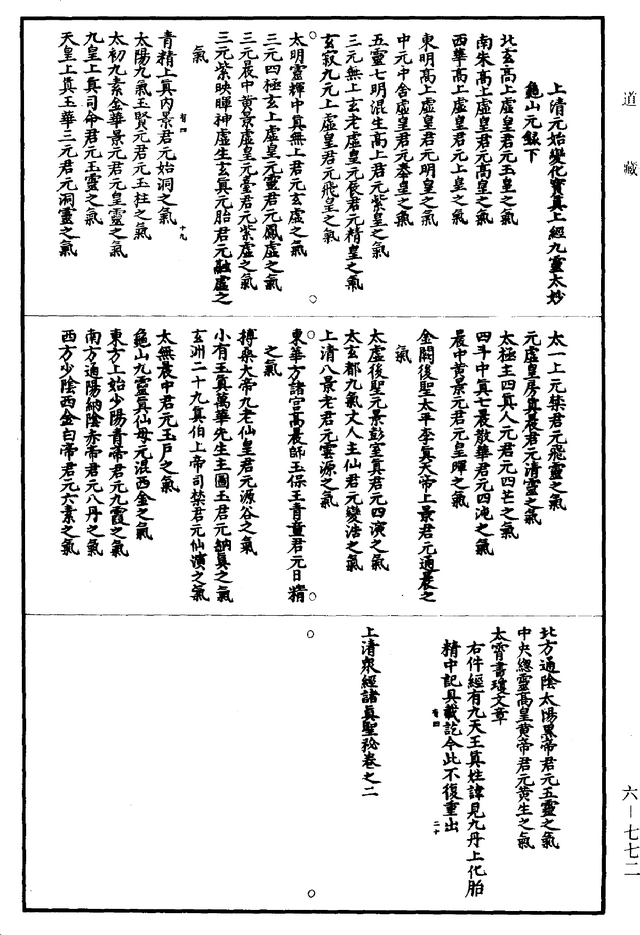 道藏
上清元始變化寶真上經九靈太妙
龜山元籙下
北玄高上虛皇君元玉皇之氣
南朱高上虛皇君元高皇之氣
西華高上虛皇君元上皇之氣
東明高上虛皇君元明皇之氣
中元中舍虛皇君元泰皇之氣
五靈七明混生高上君元紫皇之氣
三元無上玄老虛皇元辰君元精皇之氣
玄寂九元上虛皇君元飛皇之氣
太明靈輝中真無上君元玄虛之氣
三元四極玄上虛皇元靈君元鳳虛之氣
三元晨中黃景虛皇元臺君元紫虛之氣
三元紫映暉神虛生玄真元胎君元融虛之
氣
青精上真內景君元始洞之氣
有四 十九
太陽九氣玉賢元君元玉柱之氣
太初九素金華景元君元皇靈之氣
九皇上真司命君元玉靈之氣
天皇上真玉華三元君元洞靈之氣
太一上元禁君元飛靈之氣
元虛皇房真晨君元清靈之氣
太極主四真人元君元四芒之氣
四斗中真七晨散華君元四沌之氣
晨中黃景元君元皇暉之氣
金闕後聖太平李真天帝上景君元通晨之
氣
太虛後聖元景彭室真君元四演之氣
太玄都九氣丈人主仙君元變浩之氣
上清八景老君元雲源之氣
東華方諸宮高晨師玉保王青童君元日精
之氣
榑桑大帝九老仙皇君元源谷之氣
小有玉真萬華先生主圖玉君元納真之氣
玄洲二十九真伯上帝司禁君元仙演之氣
太無晨中君元玉戶之氣
龜山九靈真仙母元混西金之氣
東方上始少陽青帝君元九霞之氣
南方通陽納陰赤帝君元八丹之氣
西方少陰西金白帝君元六素之氣
北方通陰太陽黑帝君元五靈之氣
中央總靈高皇黃帝君元黃生之氣
太霄書瓊文章
右件經有九天王真姓諱見九丹上化胎
精中記具載訖今此不復重出
有四 二十
上清眾經諸真聖祕卷之二
六-七七二